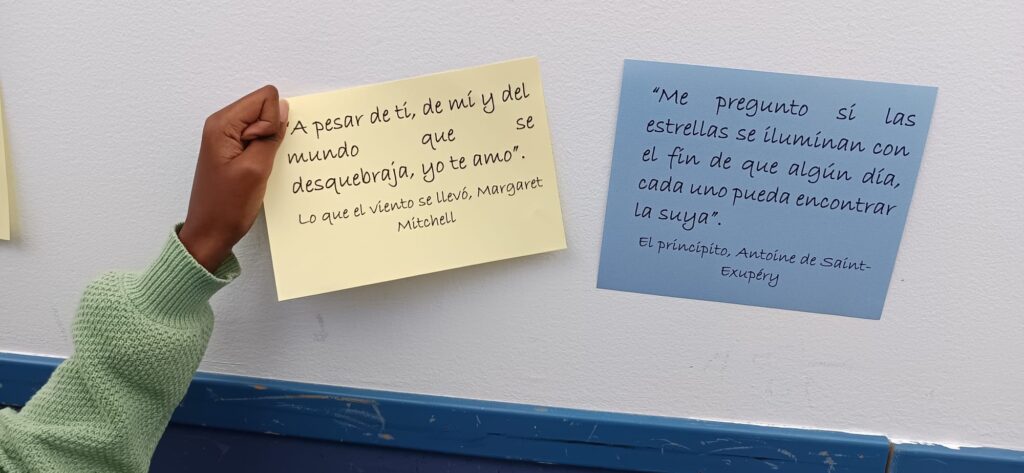 "A pesar de ti, de mí y del
mundo que se
desquebraja, yo te amo".
Lo que el viento se llevó, Margaret
Mitchell
"Me pregunto si las
estrellas se iluminan con
el fin de que algún día,
cada uno pueda encontrar
la suya".
El principito, Antoine de Saint-
Exupéry